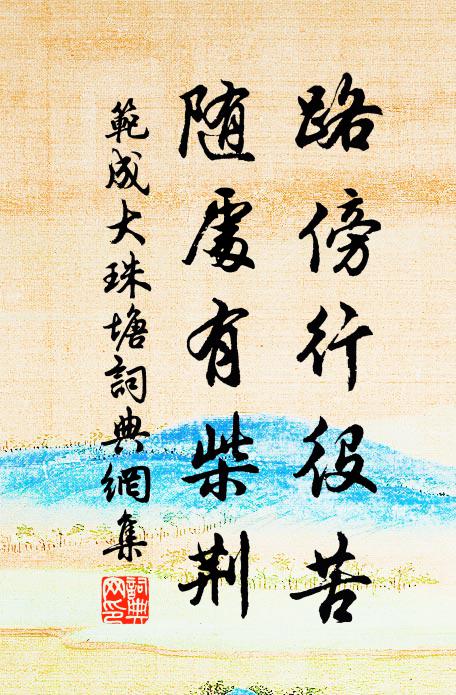 路傍行役苦
随處有柴荆
範成大珠塘詞典網集
詞典网印